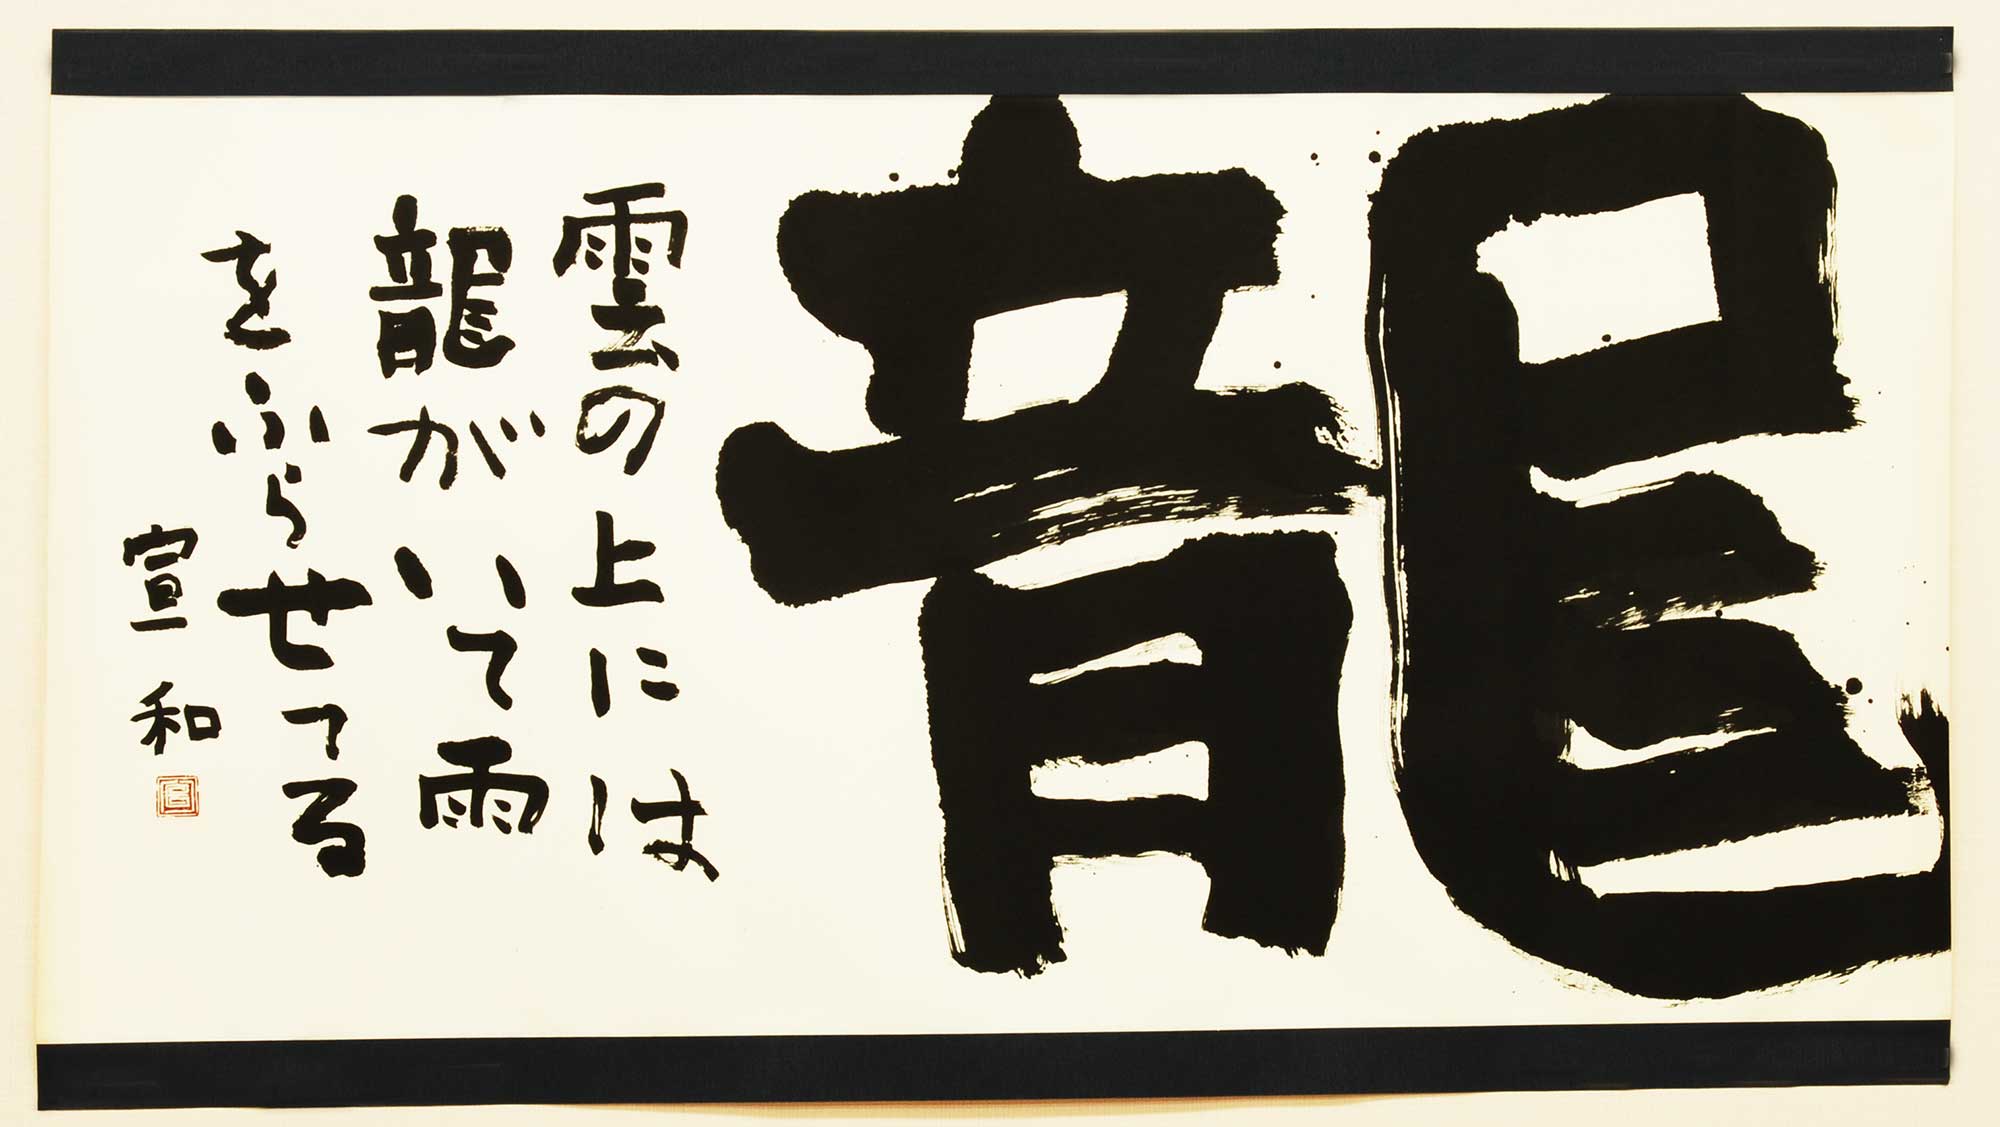 龍
雲の上には
龍がいて雨
をふらせてる
宣和